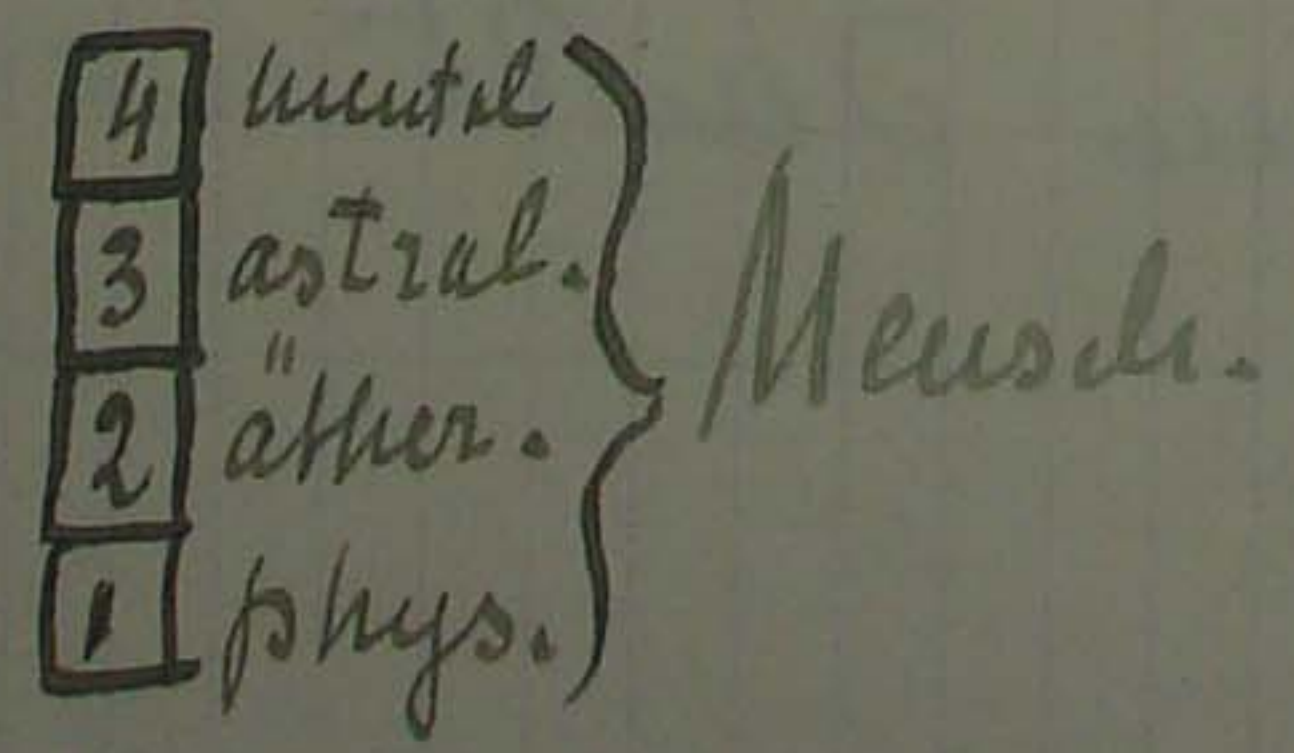 4 mental
3 astral.
2 äther.
1 phys.
Mensch.